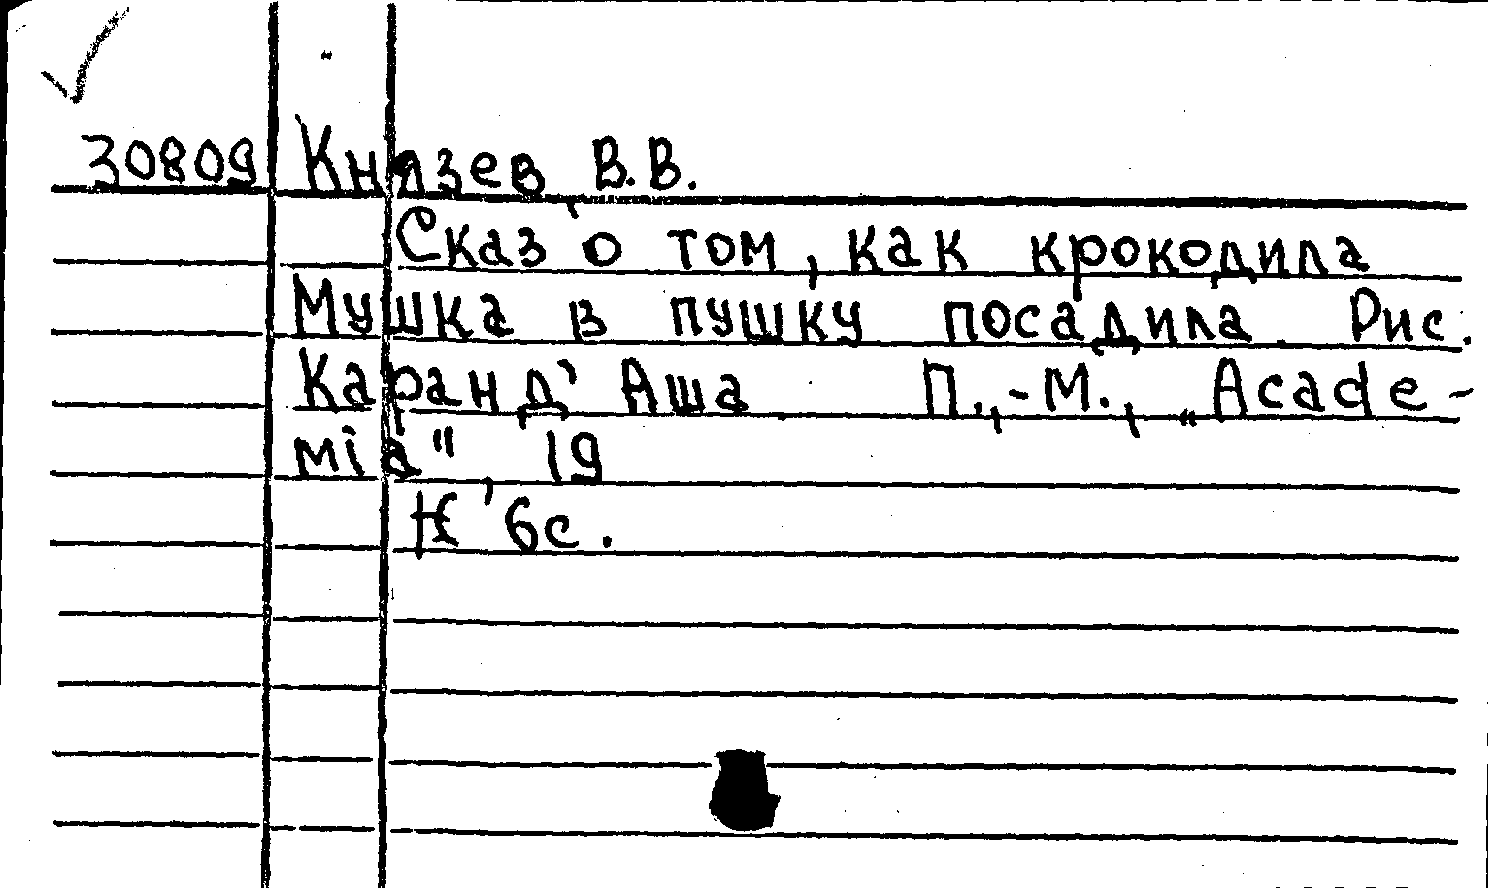 30809 Князев В.В.
Сказ о том, как крокодила
Мушка в пушку посадила. Рис.
Каранд' Аша П.,-М., „Acade-
mia" 19
6с.